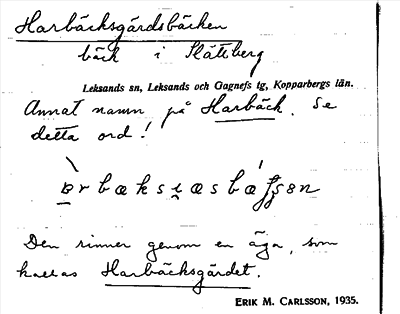 Harbäcksgärdsbäcken
bäck i Slättberg
Leksands sn, Leksands och Gagnefs tg, Kopparbergs län.
Annat namn på Harbäck. Se
detta ord!
Den rinner genom en äga, som
kallas Harbäcksgärdet.
ERIK M. CARLSSON, 1935.